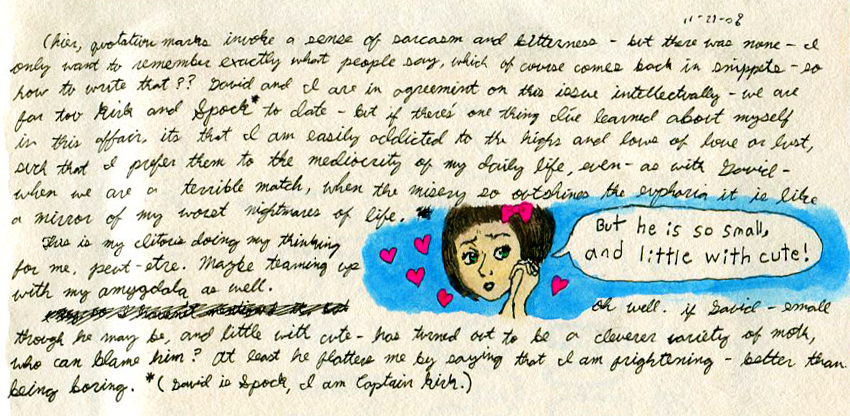 11-21-08
(hier, quotation marks invoke a sense of sarcasm and bitterness - but there was none - I
only want to remember exactly what people say, which of course comes back in snippets - so
how to write that?? David and I are in agreement on this issue intellectually - we are
far too Kirk and Spock* to date - but if there's one thing I've learned about myself
in this affair, its that I am easily addicted to the highs and lows of love or lust,
such that I prefer them to the mediocrity of my daily life, even - as with David -
when we are a terrible match, when the misery so outshines the euphoria it is like
a mirror of my worst nightmares of life.
This is my clitoris doing my thinking
for me, peut-etre. Maybe teaming up
with my amygdala as well.
But he is so small,
and little with cute!
oh well. if David - small
though he may be, and little with cute - has turned out to be a cleverer variety of moth,
who can blame him? At least he flatters me by saying that I am frightening - better than
being boring. *(David is Spock, I am Captain Kirk.)